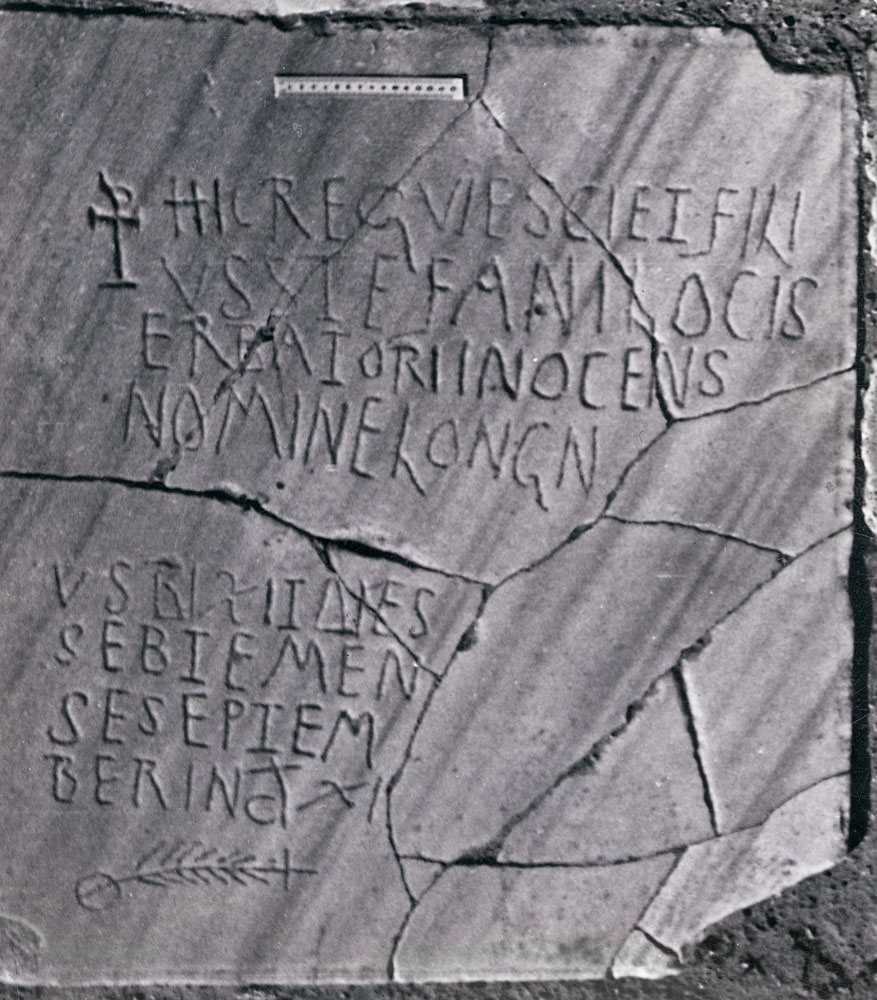 ⳨ HIC REQVIESCIET FILI
VS STEFANI LOCIS
ERBATORI INOCENS
NOMINE KONGN
VS BIXIT DIES
SEBTE MEN
SE SEPTEM
BER IND XI